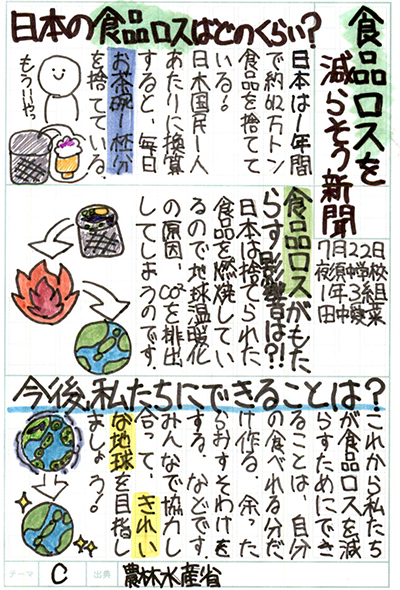 食品ロスを
減らそう新聞
7月22日
夜須中学校
1年3組
田中
日本の食品ロスはどのくらい?
日本は1年間
で約612万トン
食品を捨てて
いる!
日本国民一人
あたりに換算
すると、毎日
お茶碗一杯分
を捨てている。
もういいやっ
食品ロスがもた
らす影響は?!
日本は捨てられた
食品を燃焼してい
るので地球温暖化
の原因、CO2を排出
してしまうのです。
今後、私たちにできることは?
これから私たち
が食品ロスを減
らすためにでき
ることは、自分
の食べれる分だ
け作る、余った
らおすそわけを
する、などです。
みんなで協力し
合って、きれい
な地球を目指し
ましょう!
テーマ C 出典 農林水産省